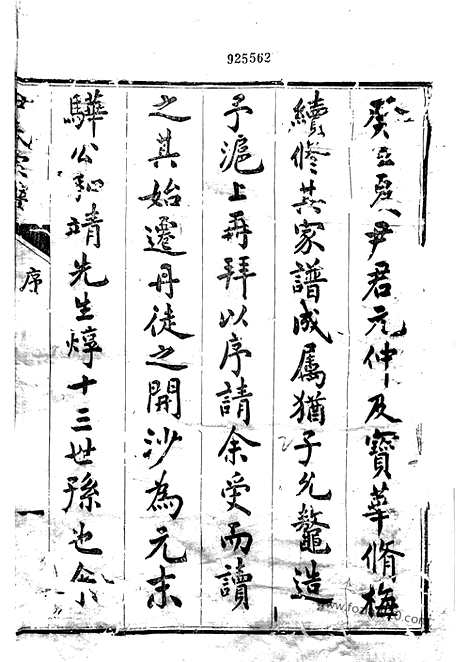 925562
癸丑夏尹君元仲及寶華脩梅
續修其家譜成屬猶子允鼇造
予滬上再拜以序請余受而讀
之其始遷丹徒之開沙為元末
驊公和靖先生焞十三世孫也
尹氏宗譜
序
一